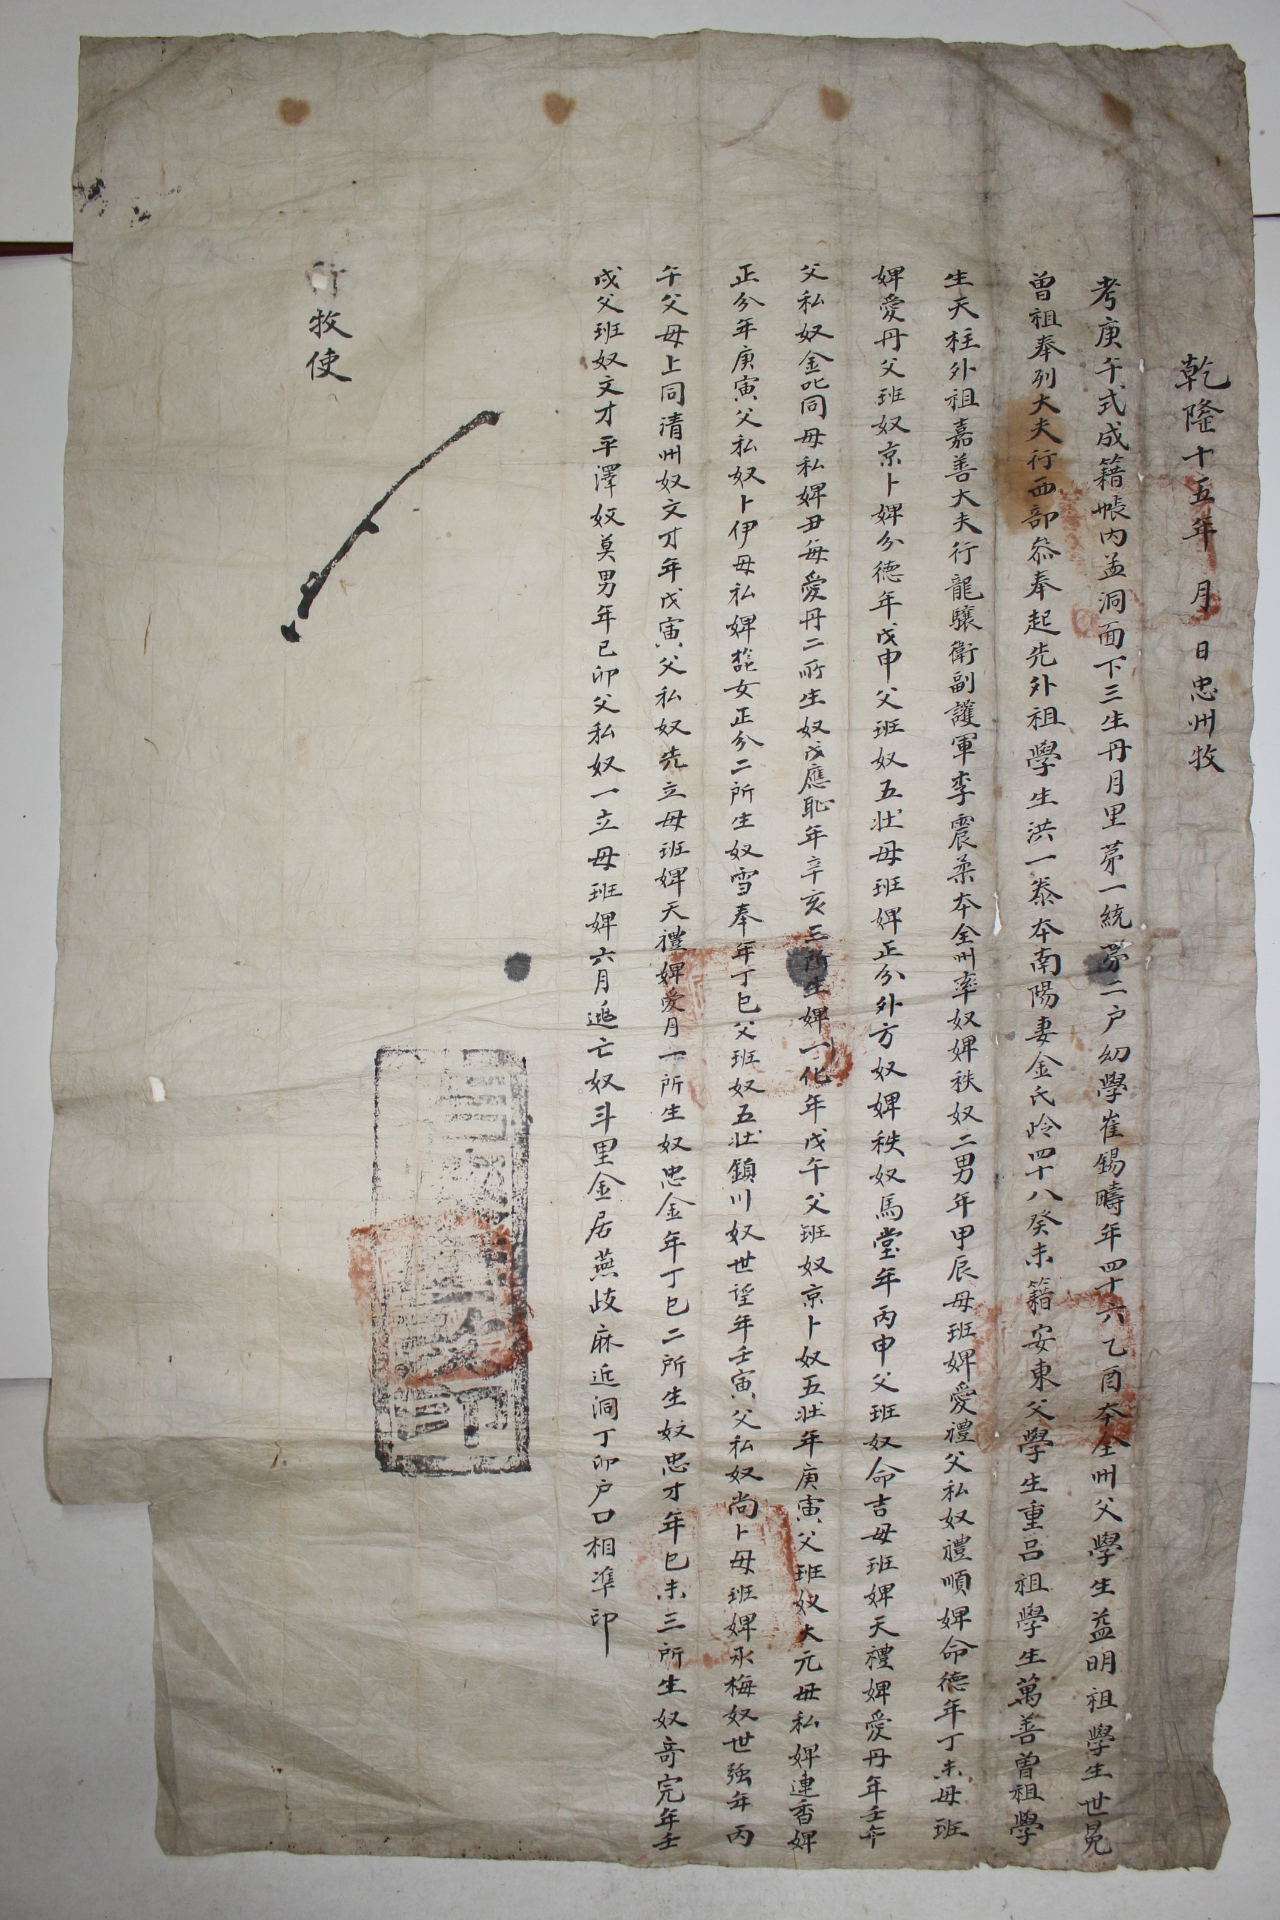 乾隆十五年 月 日忠州牧
考庚午式成籍帳內孟洞面下三生丹月里苐一統苐二户幼學崔錫疇年四十六乙酉本全州父學生益明祖學生世冕
曾祖奉列大夫行西部叅奉起先外祖學生洪一泰本南陽妻金氏齡四十八癸未籍安東父學生重呂祖學生萬善曾祖學
生天柱外祖嘉善大夫行龍驤衛副護軍李震柔本全州率奴婢秩奴二男年甲辰母班婢愛禮父私奴禮順婢命德年丁未母班
婢愛丹父班奴京卜婢分德年戊申父班奴五壯母班婢正分外方奴婢秩奴馬堂年丙申父班奴命吉母班婢天禮婢愛丹年壬午
父私奴金同母私婢丑每愛丹二所生奴戊應耻年辛亥三所生婢一化年戊午父班奴京卜奴五壯年庚寅父班奴大元母私婢連香婢
正分年庚寅父私奴卜伊母私婢女正分二所生奴雪奉年丁巳父班奴五壯鎭川奴世望年壬寅父私奴尚卜母班婢永梅奴世強年丙
午父母上同清州奴文才年戊寅父私奴先立母班婢天禮婢愛月一所生奴忠金年丁巳二所生奴忠才年巳未三所生奴奇完年壬
戌父班奴文才平澤奴莫男年己卯父私奴一立母班婢六月逃亡奴斗里金居燕歧麻近洞丁卯户口相準印
行牧使